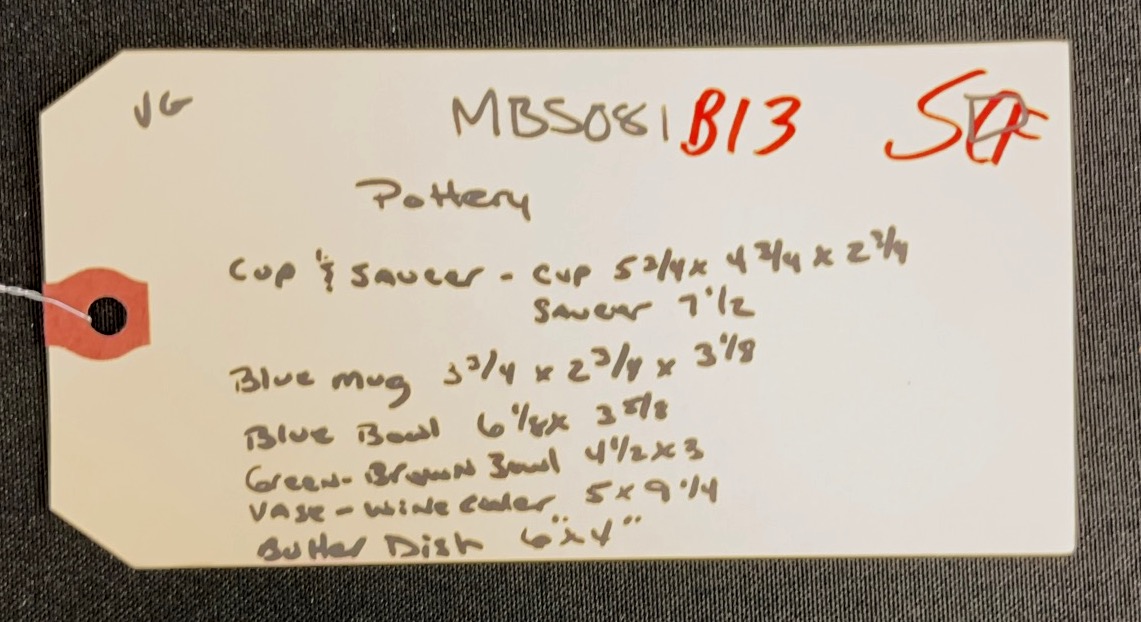 VG MBS081 B13
Pottery
Cup & Saucer - Cup 5 3/4 x 4 3/4 x 2 3/4
Saucer 7 1/2
Blue Mug 3 3/4 x 2 3/4 x 3 1/8
Blue Bowl 6 1/8 x 3 5/8
Green-Brown Bowl 4 1/2 x 3
Vase - Wine Cooler 5 x 9 1/4
Butter Dish 6" x 4"